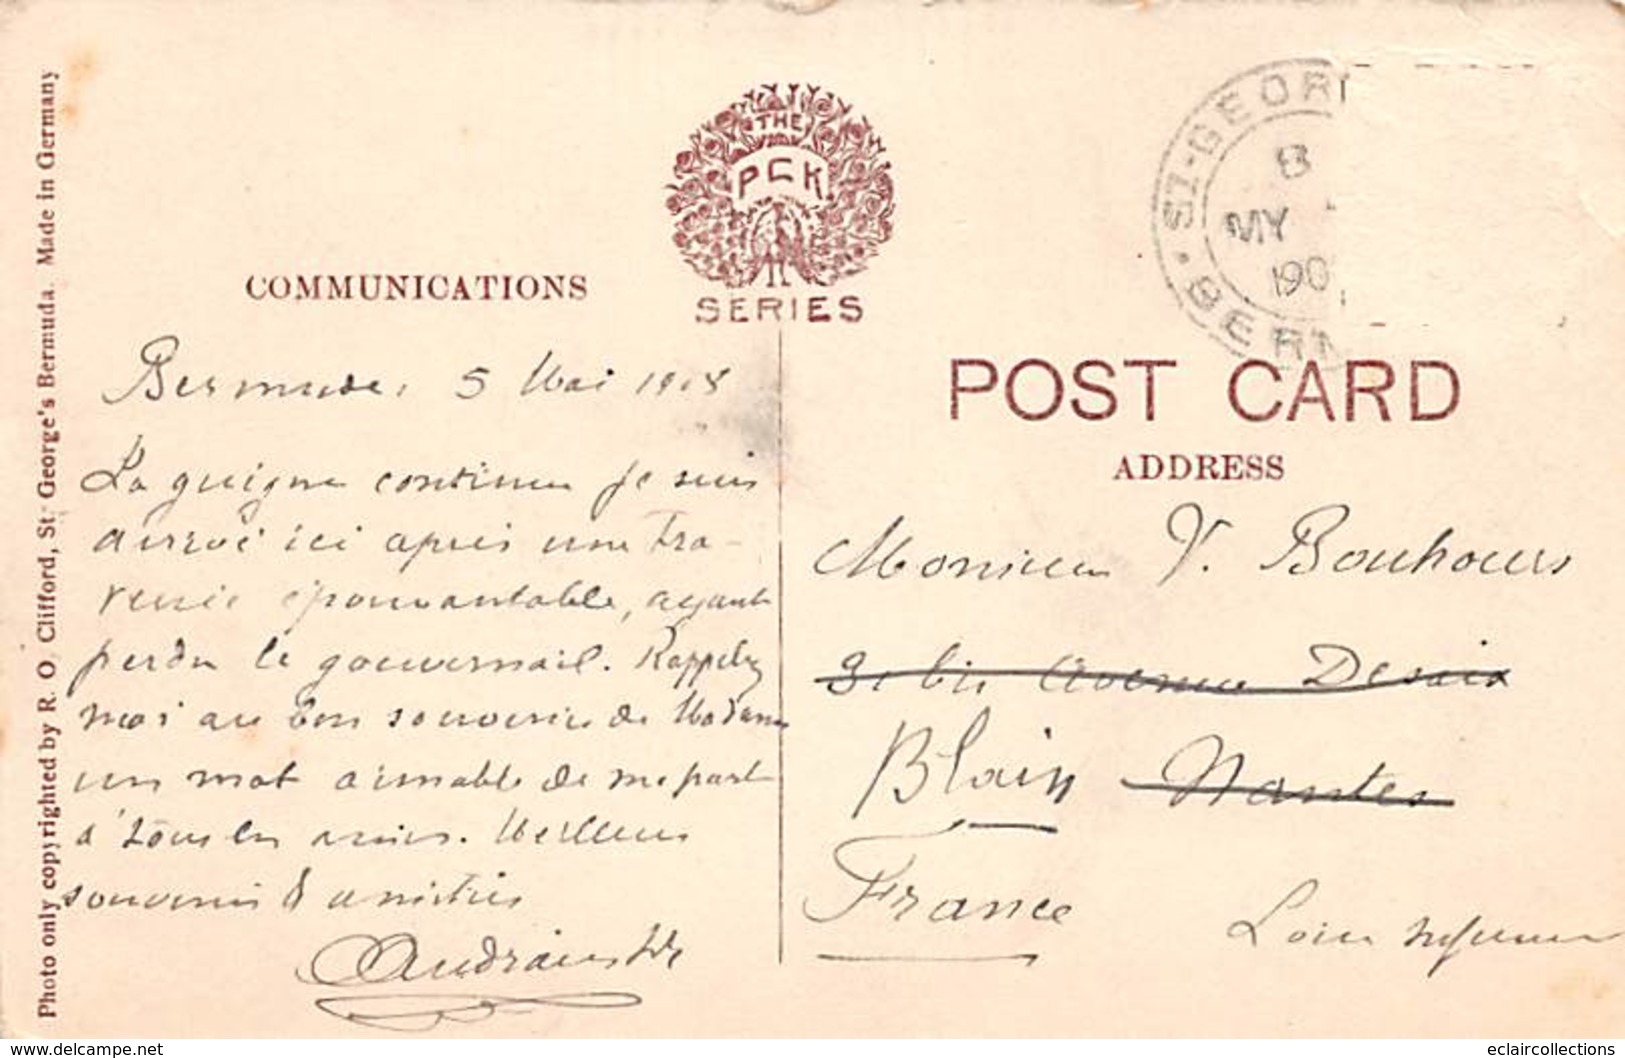 Photo only copyrighted by R. O. Clifford, St. George's Bermuda. Made in Germany
THE
PCK
SERIES
COMMUNICATIONS
ST-GEOR
8
MY
190
BERM
POST CARD
ADDRESS
Bermude, 5 Mai 1908
La guigne continue je suis
arrivé ici après une tra-
versée épouvantable, ayant
perdu le gouvernail. Rappelez
moi au bon souvenir de Madame
un mot aimable de ma part
à tous les amis. Meilleurs
souvenirs & amitiés
Monsieur V. Bouhours
31 bis Avenue Desaix
Blain Nantes
France
Loire Inférieure
delcampe.net
eclaircollections